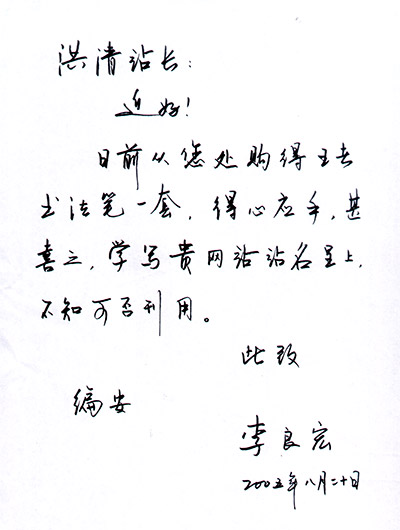 洪清站长：
近好！
日前从您处购得王者
书法笔一套，得心应手，甚
喜之，学写贵网站站名呈上，
不知可否利用。
此致
编安
李良宏
2005年八月二十日